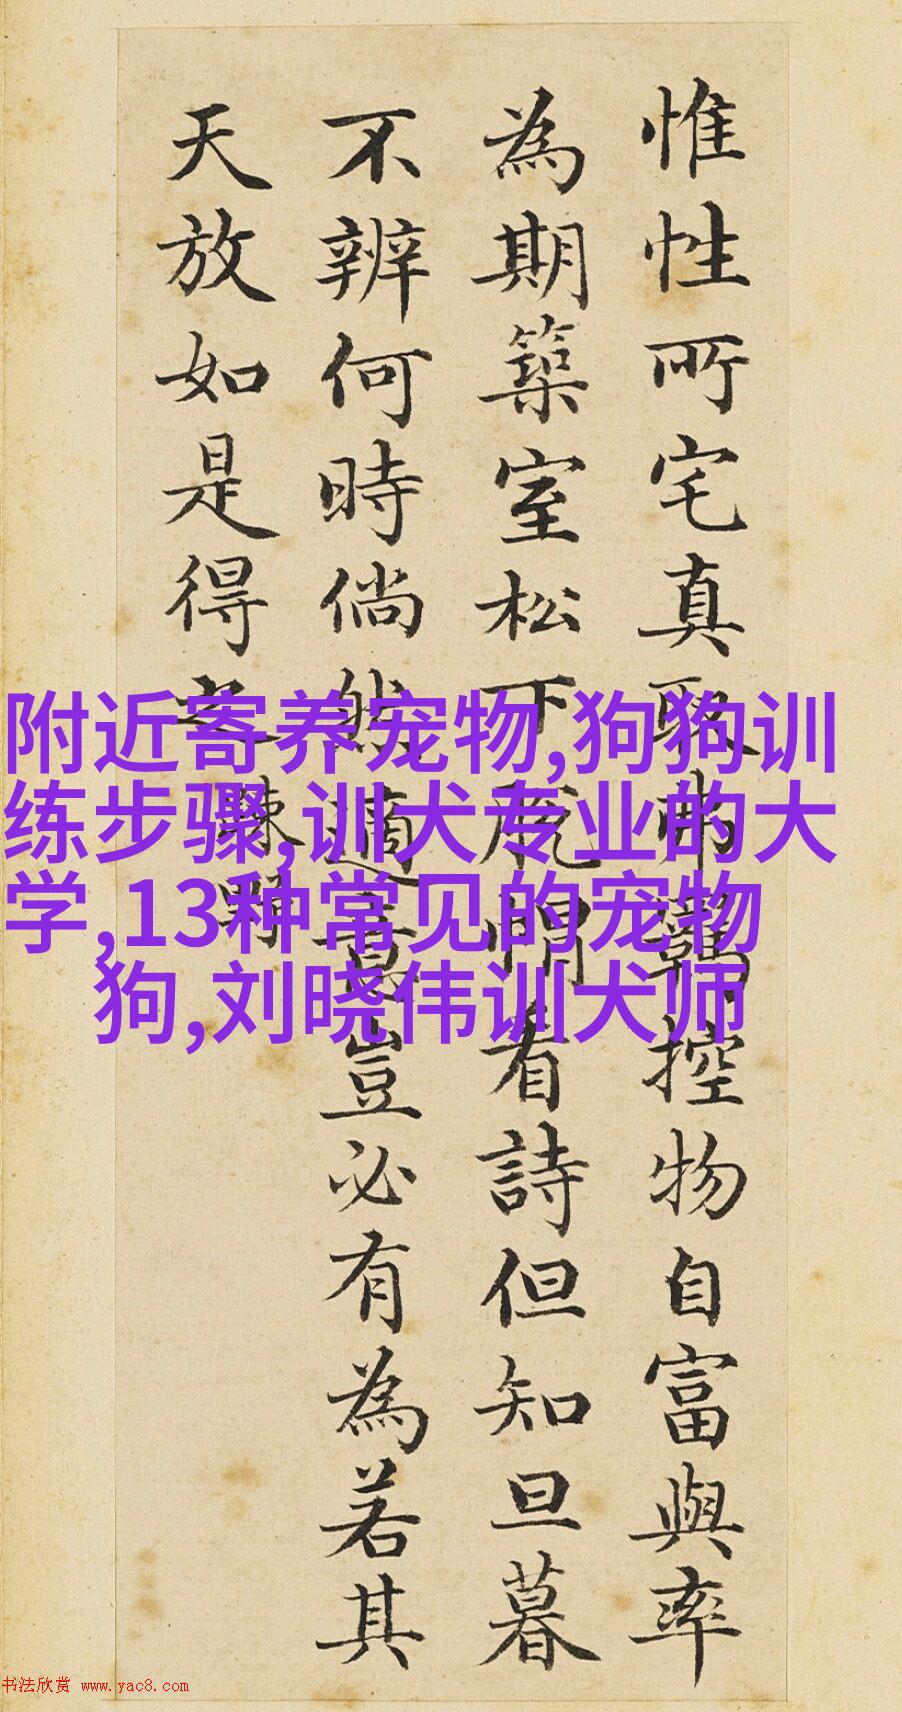 惟性所宅真取弗羈控物自富與率
為期築室松下脫帽看詩但知旦暮
不辨何時倘然適意豈必有為若其
天放如是得之
疎野
附近寄养宠物,狗狗训
练步骤,训犬专业的大
学,13种常见的宠物
狗,刘晓伟训犬师
书法欣赏 www.yac8.com